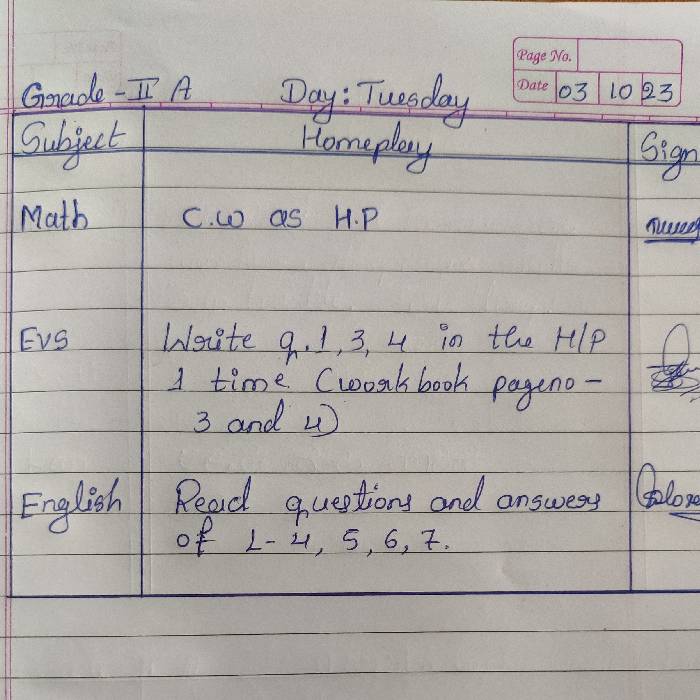 Page No.
Grade - II A Day: Tuesday Date 03 10 23
Subject Homeplay Sign
Math C.W as H.P
EVS Write q. 1, 3, 4 in the H/P
1 time (workbook pageno -
3 and 4)
English Read questions and answers
of L- 4, 5, 6, 7.